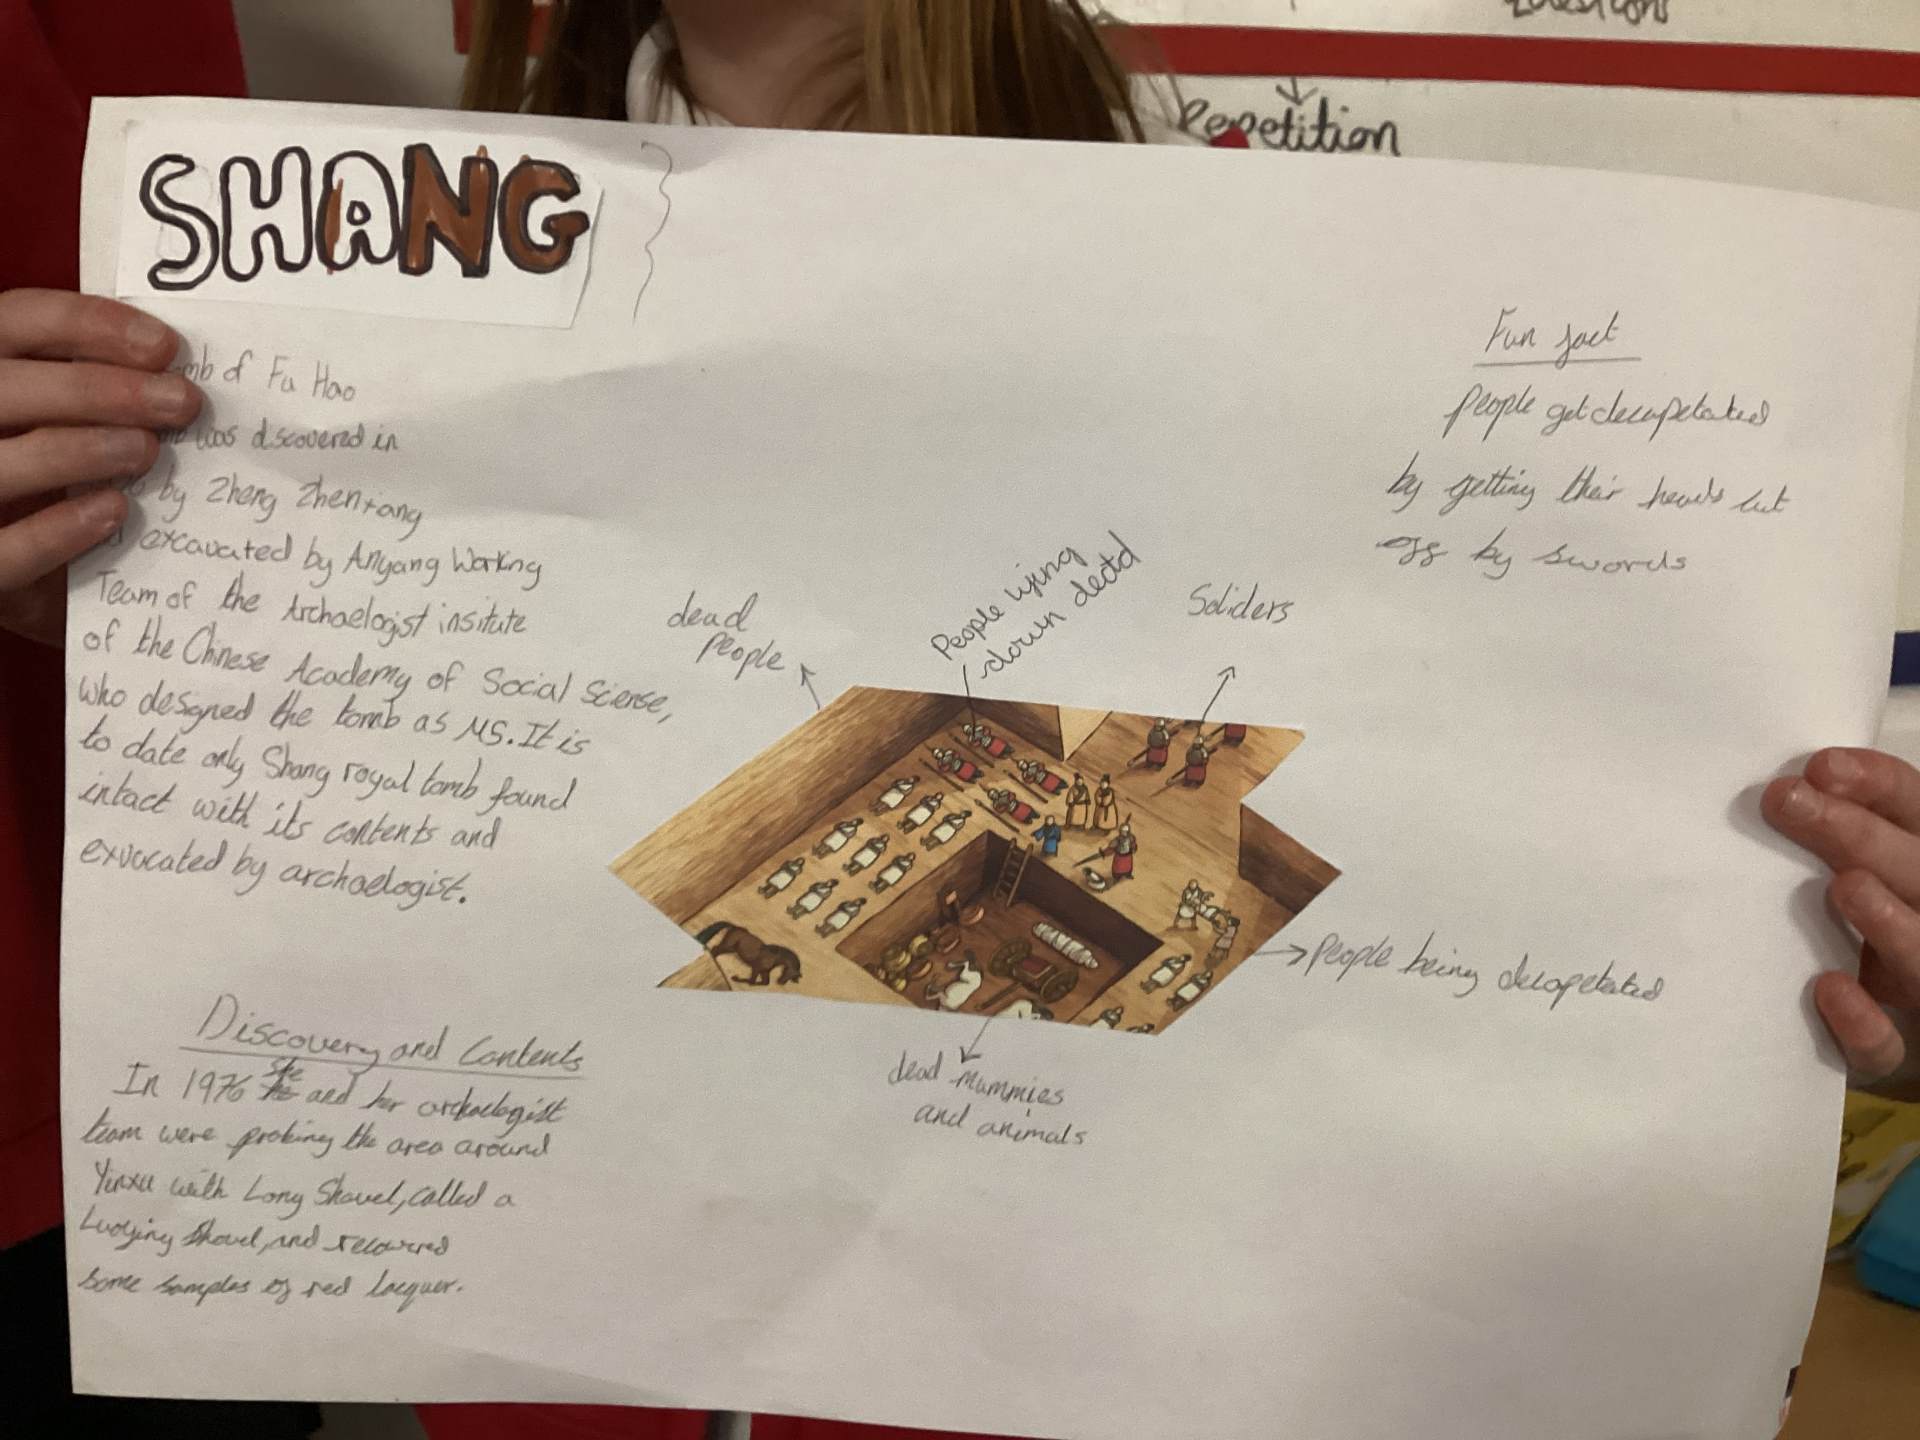 Repetition
SHANG
mb of Fu Hao
was dscovered in
by Zheng Zhenxang
excavated by Anyang Workng
Team of the Archaelogist insitute
of the Chinese Academy of Social Sciense,
who desgned the tomb as M5. It is
to date only Shang royal tomb found
intact with its contents and
exvocated by archaelogist.
Discovery and Contents
In 1976 she and her archaelogist
team were probing the area around
Yinxu with Long Shovel, called a
Luoying Shovel, and recovered
some samples of red lacquer.
Fun fact
People get decapetated
by getting their heads cut
off by swords
dead
people
People lying
down dead
Soliders
People being decapetated
dead mummies
and animals